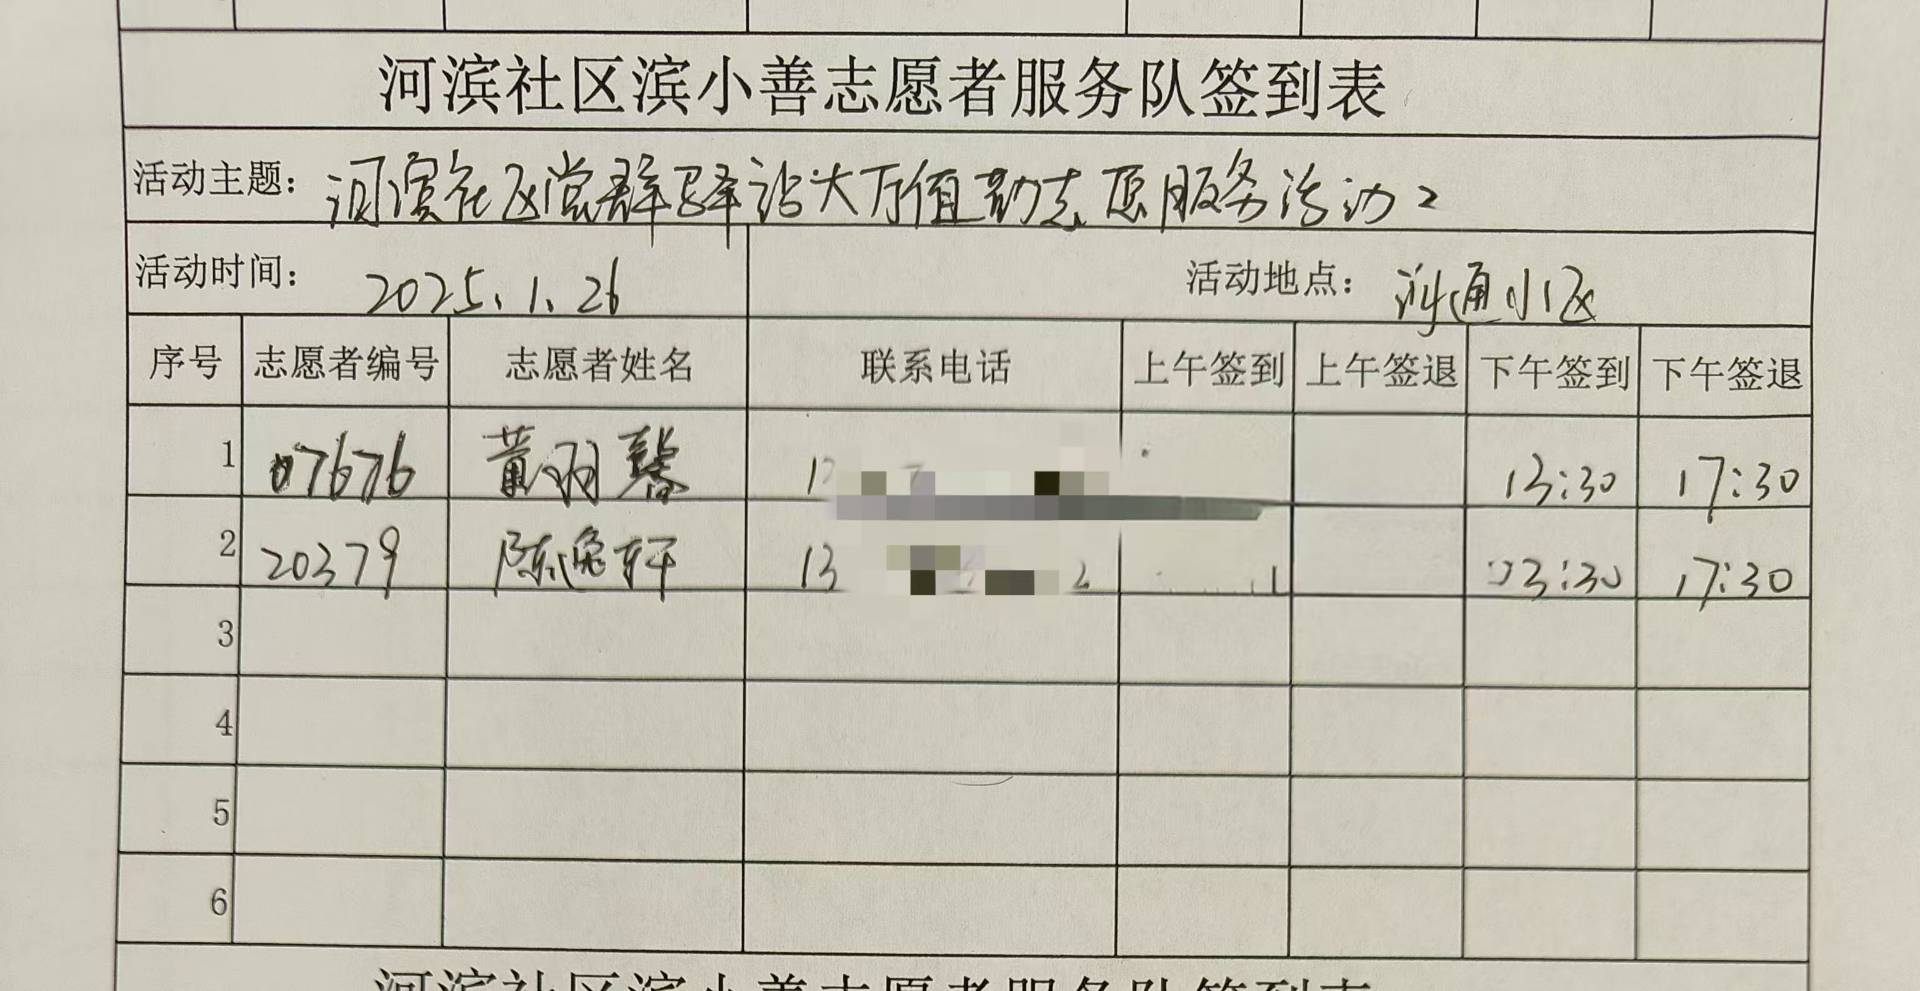 河滨社区滨小善志愿者服务队签到表
活动主题： 河滨社区党群驿站大厅值勤志愿服务活动2
活动时间： 2025.1.26 活动地点： 沟通小区
序号 志愿者编号 志愿者姓名 联系电话 上午签到 上午签退 下午签到 下午签退
1 07676 黄羽馨 13:30 17:30
2 20379 陈逸轩 13 2 13:30 17:30
3
4
5
6
河滨社区滨小善志愿者服务队签到表